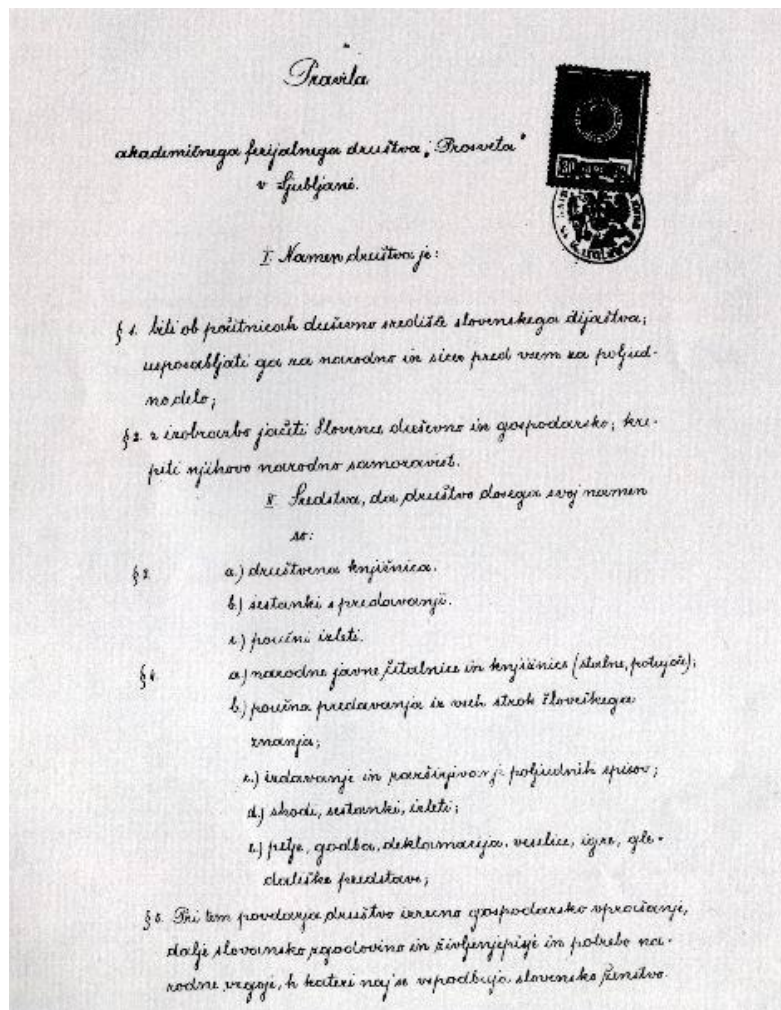 Pravila
akademičnega ferijalnega društva „Prosveta"
v Ljubljani.
I. Namen društva je:
§ 1. biti ob počitnicah duševno središče slovenskega dijaštva;
usposabljati ga za narodno in sicer pred vsem za poljud-
no delo;
§ 2. z izobrazbo jačiti Slovence duševno in gospodarsko; kre-
piti njihovo narodno samozavest.
II. Sredstva, da društvo dosega svoj namen
so:
§ 3. a.) društvena knjižnica.
b.) sestanki s predavanji.
c.) poučni izleti.
§ 4. a.) narodne javne čitalnice in knjižnice (stalne, potujoče);
b.) poučna predavanja iz vseh strok človeškega
znanja;
c.) izdavanje in razširjivanje poljudnih spisov;
d.) shodi, sestanki, izleti;
e.) petje, godba, deklamacija, veselice, igre, gle-
dališke predstave;
§ 5. Pri tem povdarja društvo izrecno gospodarsko vprašanje,
dalje slovansko zgodovino in življenjepisje in potrebo na-
rodne vzgoje, h kateri naj se vspodbuja slovensko ženstvo.